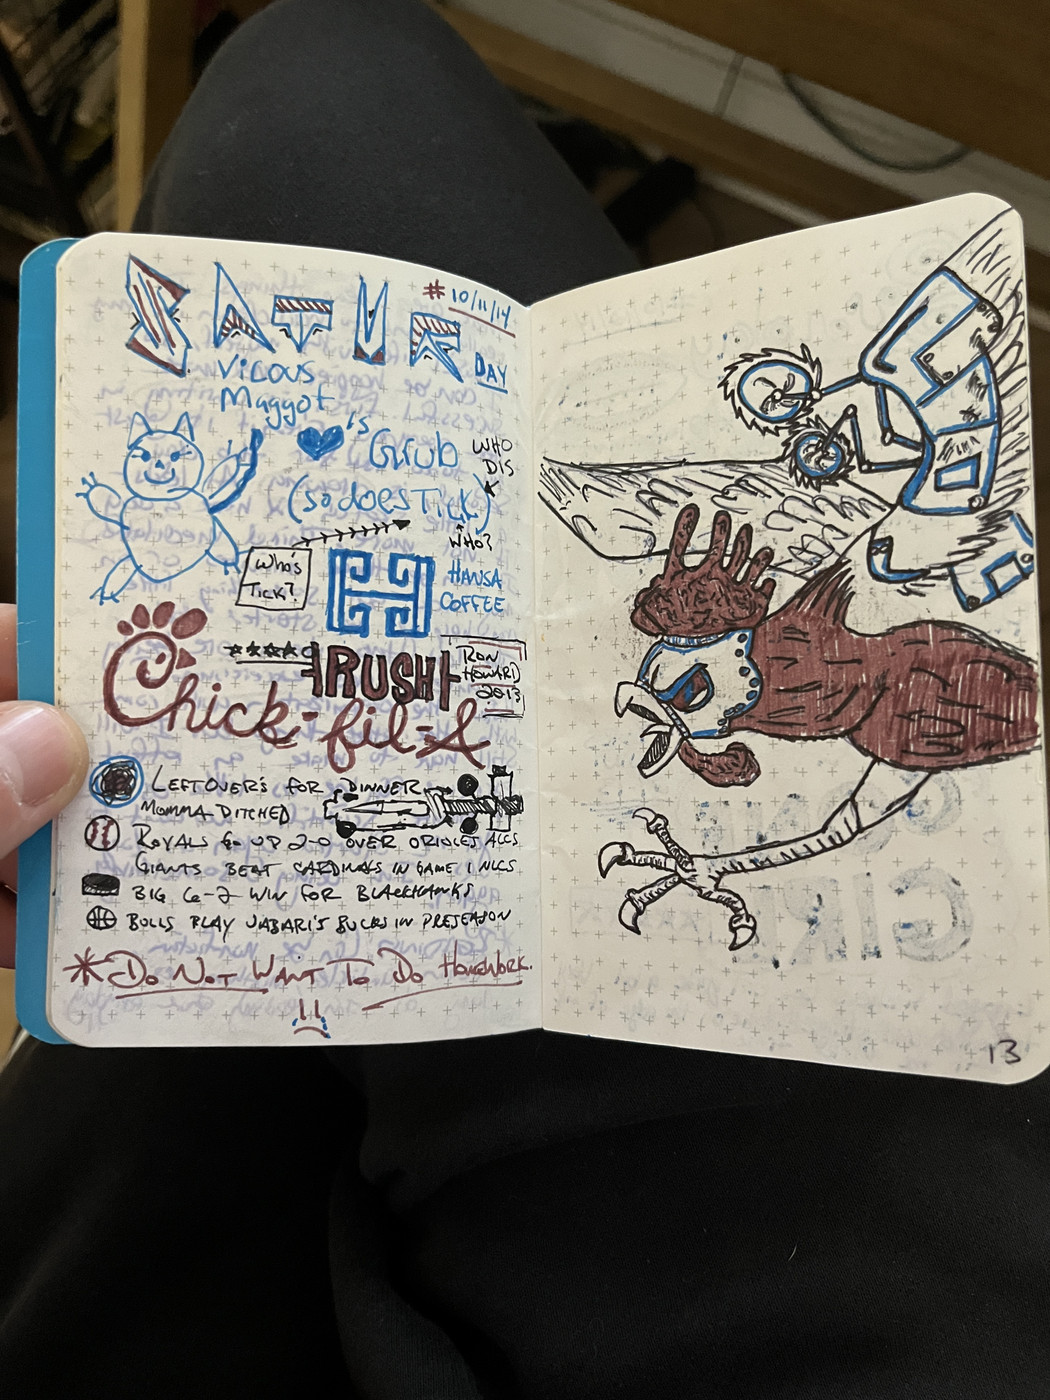 SATUR
DAY
# 10/11/14
Vicous
Maggot
is
Grub
(so does Tick)
WHO
DIS
WHO?
Who's
Tick?
HANSA
COFFEE
RUSH
RON
HOWARD
2013
Chick-fil-A
LEFTOVER'S FOR DINNER
MOMMA DITCHED
ROYALS GO UP 2-0 OVER ORIOLES ALCS
GIANTS BEAT CARDINALS IN GAME 1 NLCS
BIG 6-2 WIN FOR BLACKHAWKS
BULLS PLAY JABARI'S BUCKS IN PRESEASON
*DO NOT WANT TO DO HOMEWORK.
13